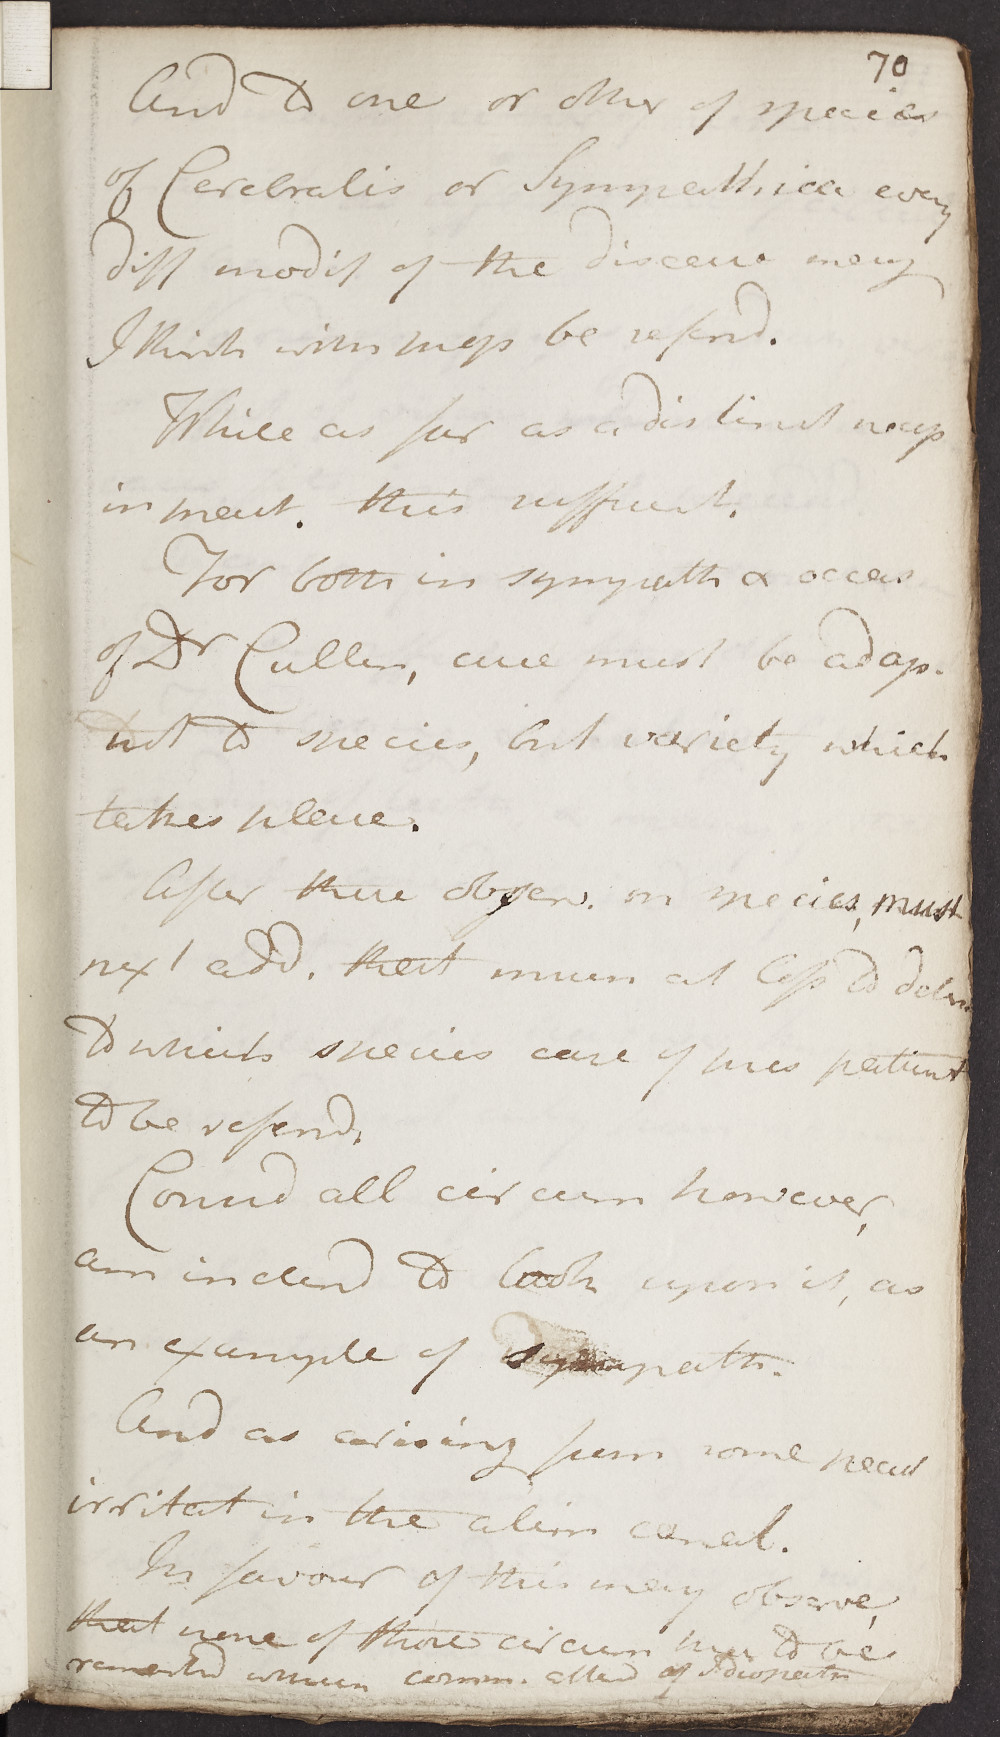 70
And to one or other of species
of Cerebralis or Sympathica every
diff modif of the disease may
I think with prop be referd.
While as far as a distinct neces
in treat. this suffict.
For both in sympath & occas
of Dr Cullen, cure must be adap-
not to species, but variety which
takes place.
After these observ. on species, must
next add. that mien at loss to deter
to which species case of pres patient
to be referd.
Consid all circum however,
am inclend to look upon it, as
an example of sympath.
And as arising from some pecul
irritat in the alim canal.
In favour of this may observe,
that none of those circum to be
remarkd which comm. attend of Idiopath